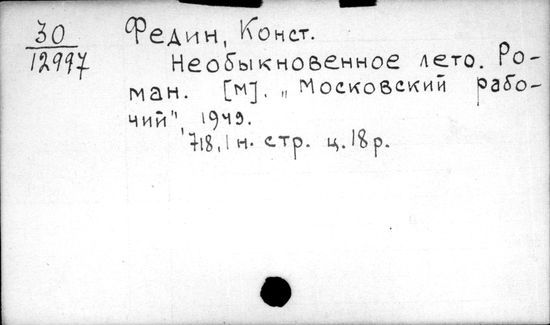 30
12997
Федин, Конст.
Необыкновенное лето. Ро-
ман. [М]. „Московский рабо-
чий", 1949.
718,1 н. стр. ц. 18 р.